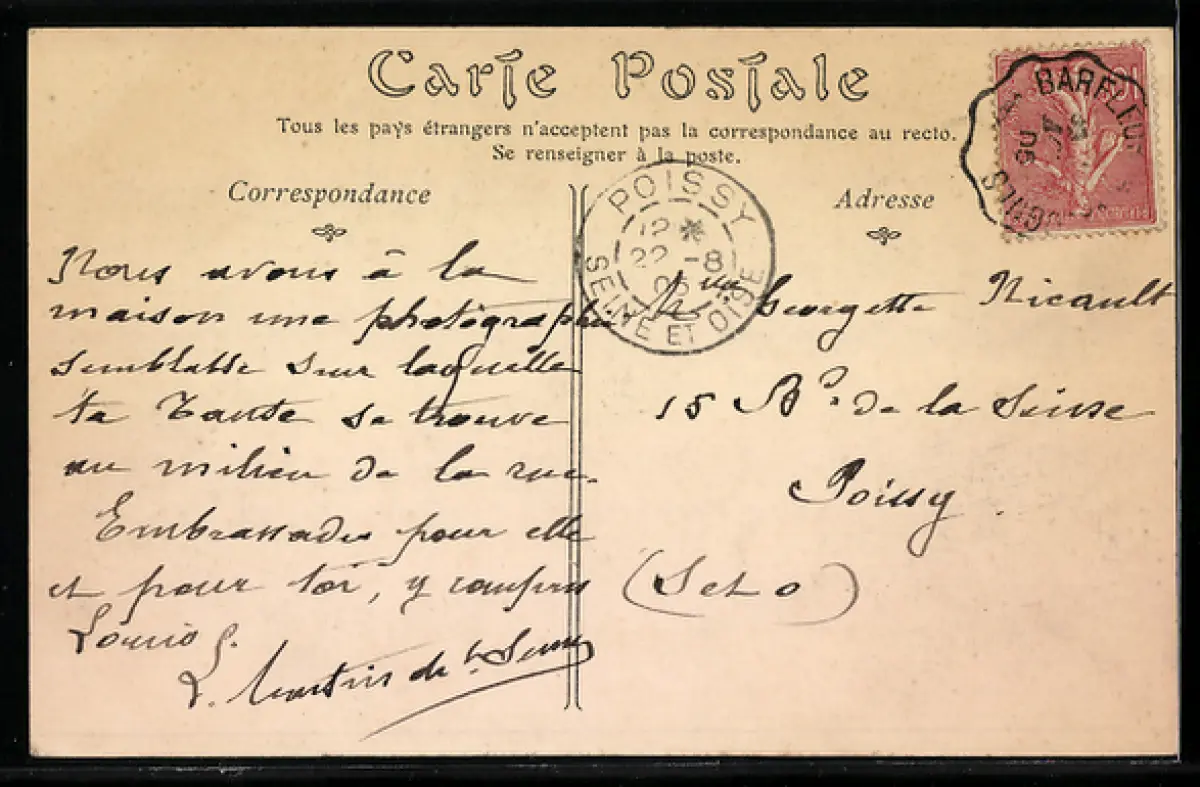 Carte Postale
Tous les pays étrangers n'acceptent pas la correspondance au recto.
Se renseigner à la poste.
Correspondance
Adresse
BARFLEUR
POISSY
12
22 -8
SEINE ET OISE
Nous avons à la
maison une photographie
semblable sur laquelle
ta Tante se trouve
au milieu de la rue.
Embrassades pour elle
et pour toi, y compris
Louis
L. Martin de
Georgette Nicault
15 Bd de la Seine
Poissy
(S et O)